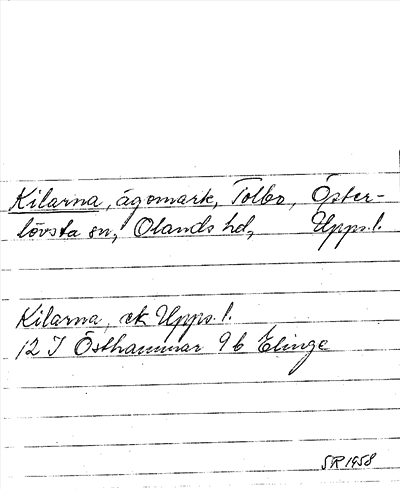 Kilarna, ägomark, Tolbo, Öster-
lövsta sn, Olands hd, Upps. l.
Kilarna, ek Upps. l.
12 I Östhammar 9b Elinge
SR 1958